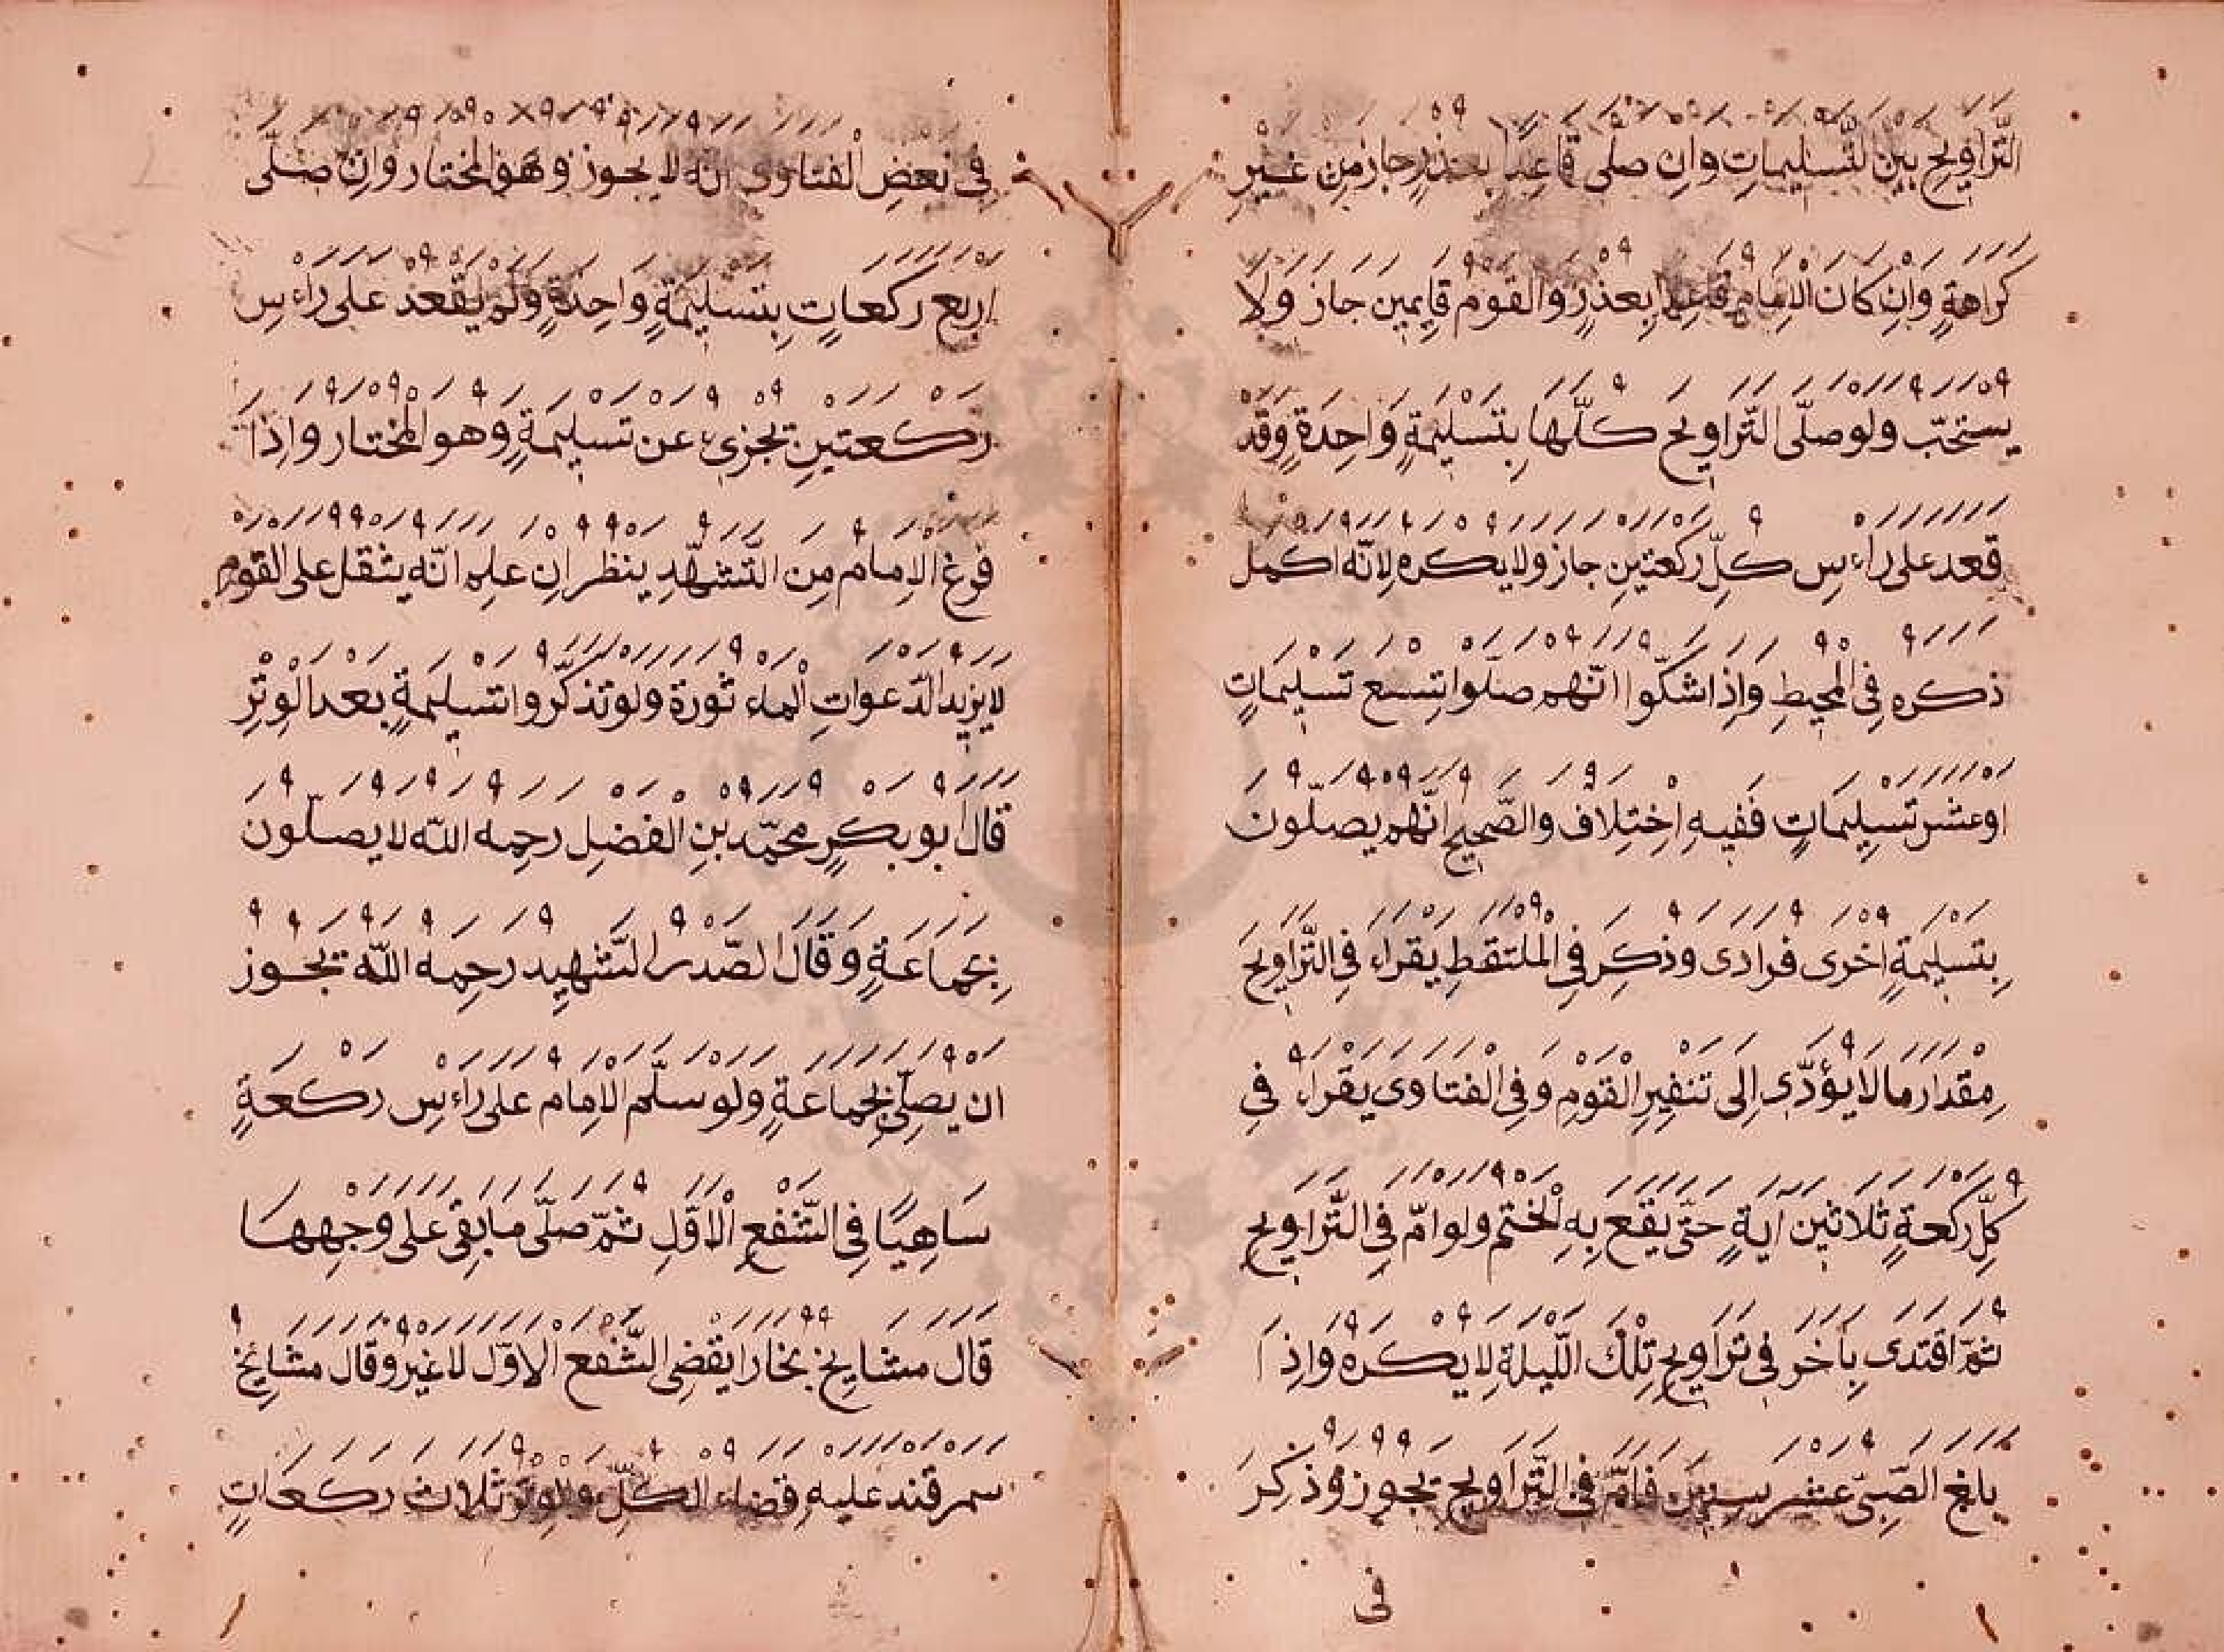 التّراويح بين التّسليمات وان صلّى قاعدا بعذرٍ جاز من غيرِ
كراهةٍ وان كان الامام قاعدا بعذرٍ والقوم قايمين جاز ولا
يستحبّ ولو صلّى التّراويح كلّها بتسليمةٍ واحدةٍ وقد
قعد على راءس كلّ ركعتين جاز ولا يكره لانّه اكمل
ذكره في المحيط واذا شكّوا انّهم صلّوا تسع تسليماتٍ
او عشر تسليماتٍ ففيه اختلاف والصّحيح انّهم يصلّون
بتسليمةٍ اخرى فرادى وذكر في الملتقط يقراء في التّراويح
مقدار ما لا يؤدّى الى تنفير القوم وفي الفتاوى يقراء في
كلّ ركعةٍ ثلاثين آيةٍ حتّى يقع به الختم ولو امّ في التّراويح
ثمّ اقتدى بآخر في تراويح تلك اللّيلة لا يكره واذا
بلغ الصّبىّ عشر سنين فامّ في التّراويح يجوز وذكر
في
في بعض الفتاوى انّه لا يجوز وهو المختار وان صلّى
اربع ركعاتٍ بتسليمةٍ واحدةٍ ولم يقعد على راءس
ركعتين تجزىء عن تسليمةٍ وهو المختار واذا
فرغ الامام من التّشهّد ينظر ان علم انّه يثقل على القوم
لا يزيد الدّعوات الماءثورة ولو تذكّروا تسليمةٍ بعد الوتر
قال ابو بكرٍ محمّد بن الفضل رحمه اللّه لا يصلّون
بجماعةٍ وقال الصّدر الشّهيد رحمه اللّه يجوز
ان يصلّى بجماعةٍ ولو سلّم الامام على راءس ركعةٍ
ساهيًا في الشّفع الاوّل ثمّ صلّى ما بقى على وجهها
قال مشايخ بخارا يقضى الشّفع الاوّل لا غير وقال مشايخ
سمرقند عليه قضاء الكلّ والوتر ثلاث ركعاتٍ